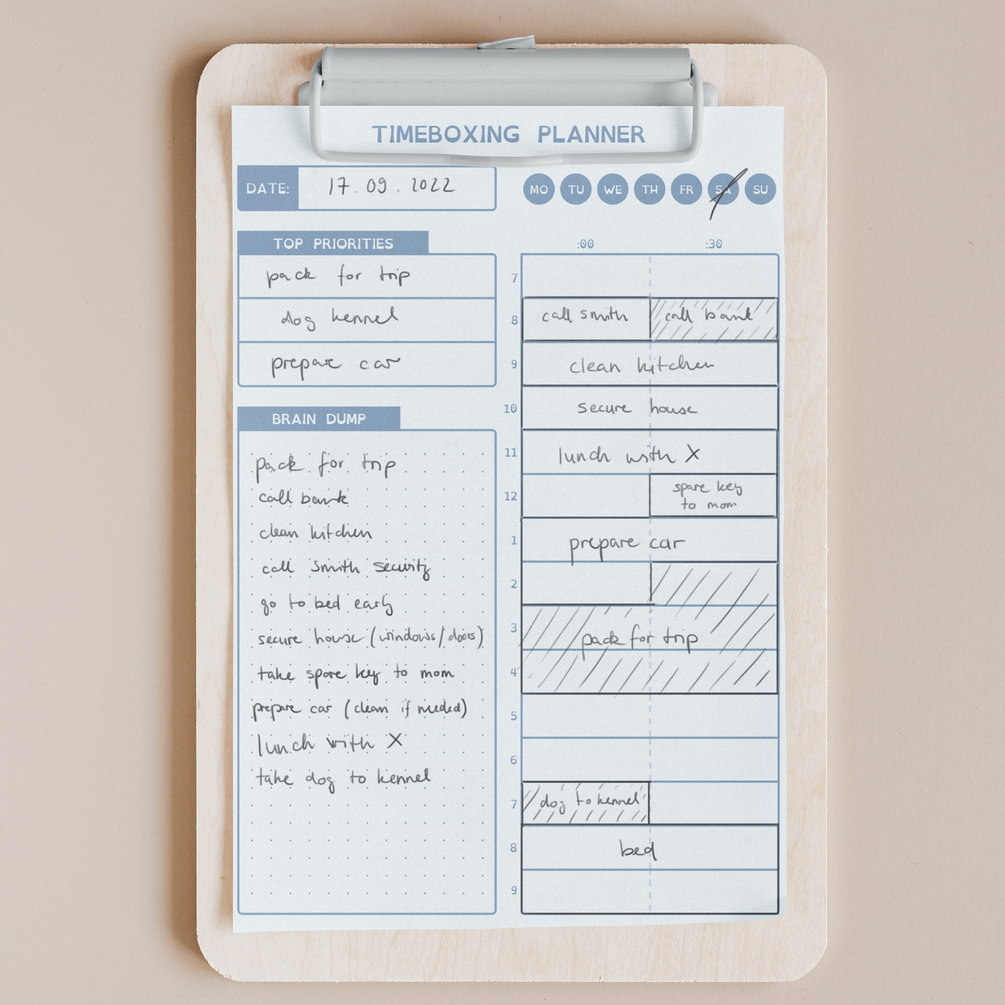 TIMEBOXING PLANNER
DATE: 17.09.2022
MO TU WE TH FR SA SU
TOP PRIORITIES
pack for trip
dog kennel
prepare car
BRAIN DUMP
pack for trip
call bank
clean kitchen
call smith security
go to bed early
secure house (windows/doors)
take spare key to mom
prepare car (clean if needed)
lunch with X
take dog to kennel
:00 :30
7
8 call smith call bank
9 clean kitchen
10 secure house
11 lunch with X
12 spare key
to mom
1 prepare car
2
3 pack for trip
4
5
6
7 dog to kennel
8 bed
9